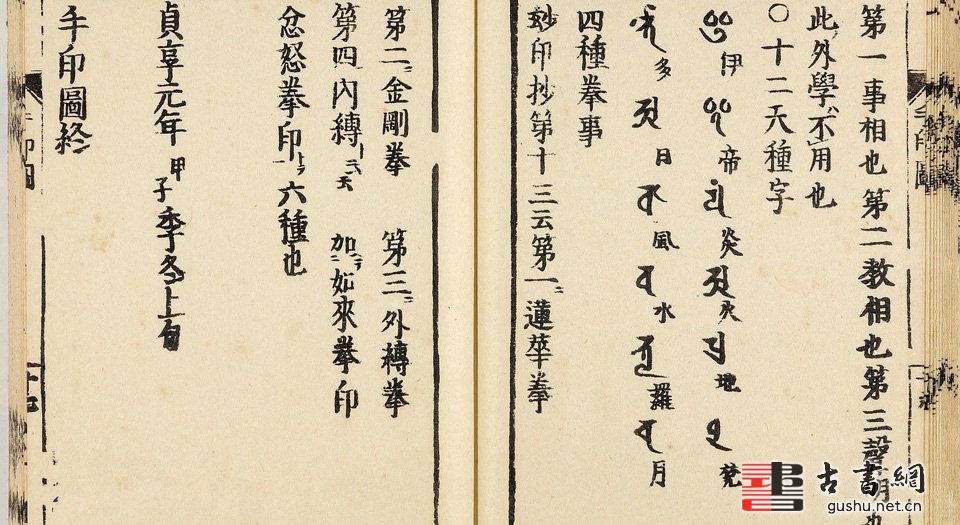 第一事相也第二教相也第三聲明也
此外學不用也
〇十二天種字
伊 帝 炎 火 地 梵
多 日 風 水 羅 月
四種拳事
玅印抄第十三云第一ニ蓮華拳
第二ニ金剛拳 第三ニ外縛拳
第四內縛 加ヘテ如來拳印
忿怒拳印六種也
貞享元年甲子季冬上旬
手印圖終
手印圖
手印圖
古書網
gushu.net.cn